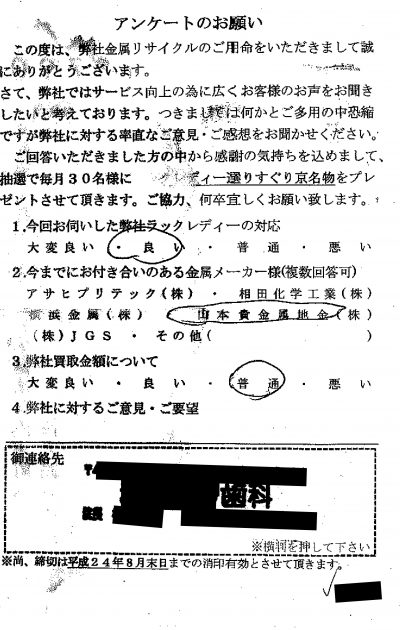 アンケートのお願い
この度は、弊社金属リサイクルのご用命をいただきまして誠
にありがとうございます。
さて、弊社ではサービス向上の為に広くお客様のお声をお聞き
したいと考えております。つきましては何かとご多用の中恐縮
ですが弊社に対する率直なご意見・ご感想をお聞かせください。
ご回答いただきました方の中から感謝の気持ちを込めまして、
抽選で毎月30名様に ディー選りすぐり京名物をプレ
ゼントさせて頂きます。ご協力、何卒宜しくお願い致します。
1.今回お伺いした弊社ラックレディーの対応
大変良い・良い・普通・悪い
2.今までにお付き合いのある金属メーカー様(複数回答可)
アサヒプリテック(株)・相田化学工業(株)
横浜金属(株)・山本貴金属地金(株)
(株)JGS・その他( )
3.弊社買取金額について
大変良い・良い・普通・悪い
4.弊社に対するご意見・ご要望
御連絡先
〒
歯科
※横判を押して下さい
※尚、締切は平成24年8月末日までの消印有効とさせて頂きます。